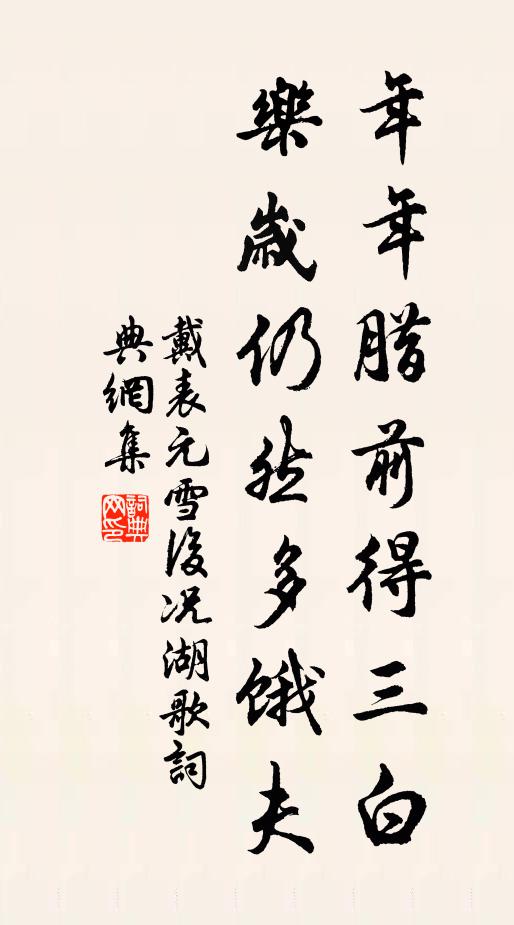 年年腊前得三白
樂歲仍然多餓夫
戴表元雪後况湖歌詞
典網集
詞典網印